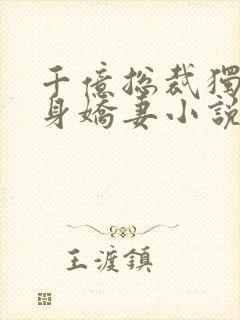 千億總裁獨
身嬌妻小說
王渡鎮